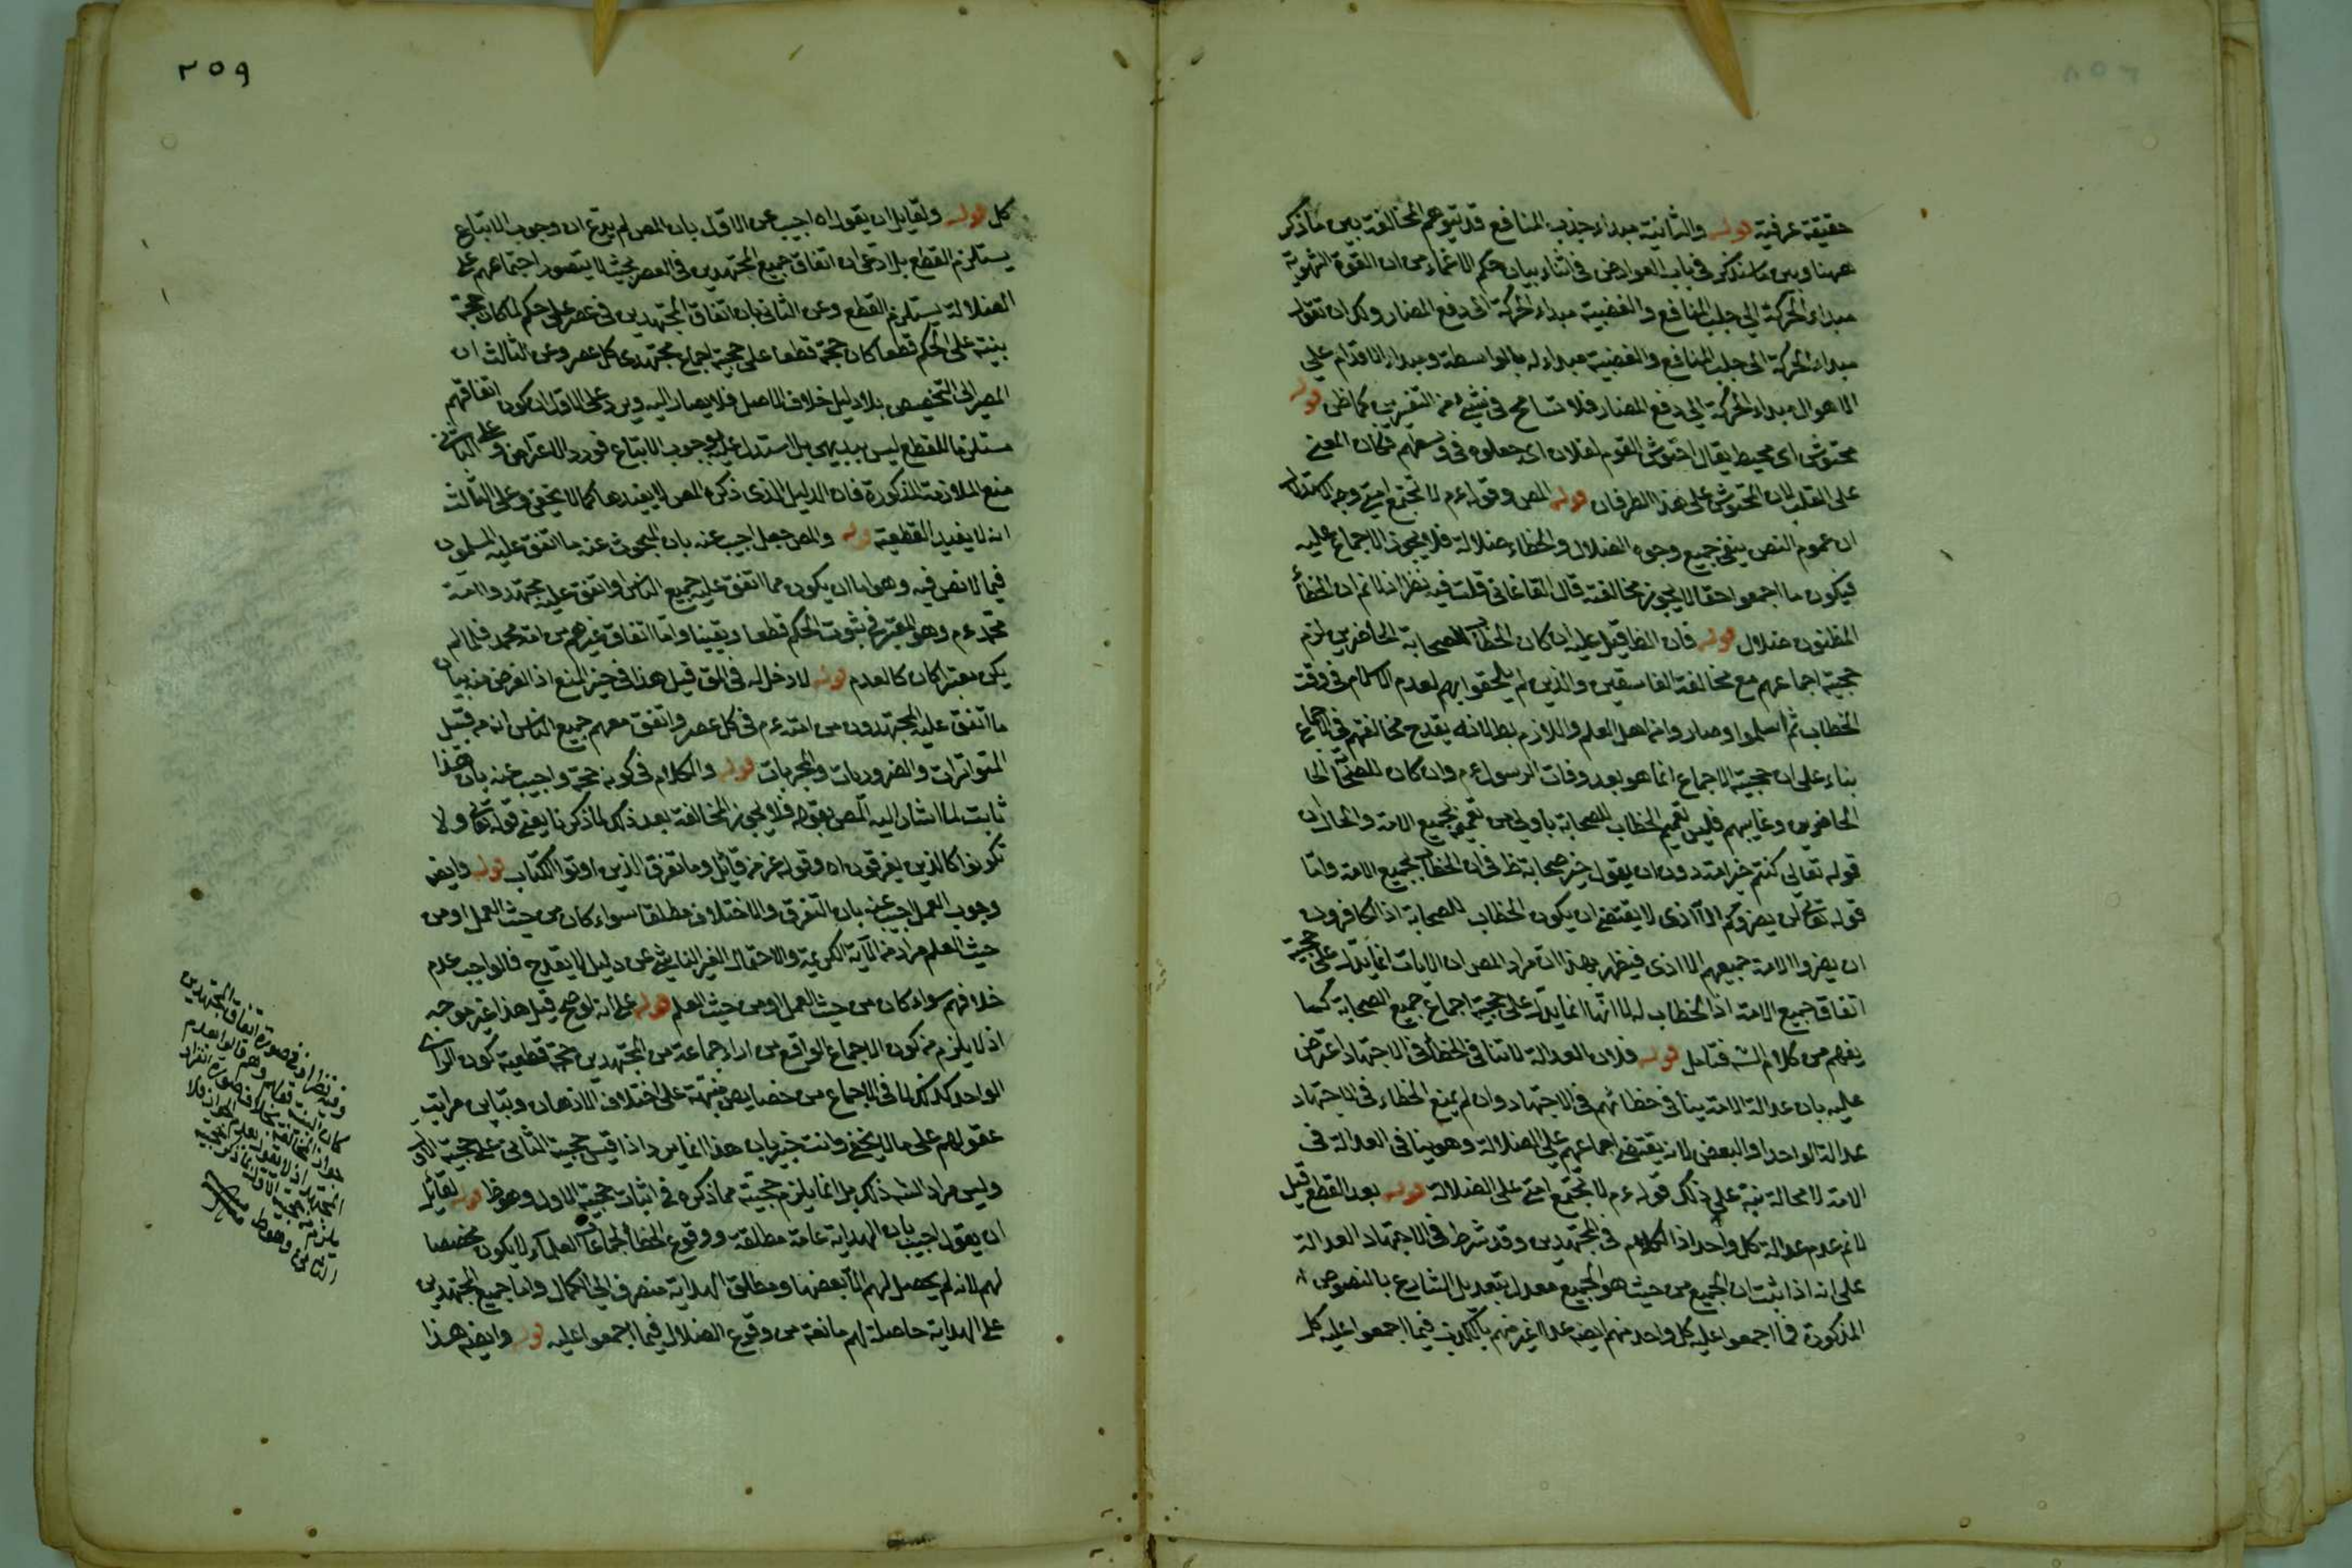 حقيقة عرفية قوله والثانية مبداء جذب المنافع قد يتوهم المخالفة بين ما ذكر
ههنا وبين ما سنذكر في باب العوارض في اثناء بيان حكم الاغماء من ان القوة الشهوية
مبداء الحركة الي جلب المنافع والغضبية مبداء الحركة الى دفع المضار ولك ان تقول
مبداء الحركة الى جلب المنافع والغضبية مبداء له بالواسطة ومبداء الاقدام علي
الاهوال مبداء الحركة الي دفع المضار فلا تسامح في شيء من التفسيرين كما ظن قوله
محتوش اى محيط يقال احتوش القوم لفلان اى جعلوه في وسطهم فكان المعنى
على القلب لان المحتوش على هذا الطرفان قوله المص وقوله ءم لا تجتمع امتي وجه الاستدلال
ان عموم النص ينفي جميع وجوه الضلال والخطاء ضلالة فلا يجوز الاجماع عليه
فيكون ما اجمعوا حقا لا يجوز مخالفته قال القاغاني قلت فيه نظر اذ لا نم ان الخطأ
المظنون ضلال قوله فان الظا قيل عليه ان كان الخطاب للصحابة الحاضرين يلزم
حجية اجماعهم مع مخالفة الفاسقين والذين لم يلحقوا بهم لعدم الاسلام في وقت
الخطاب ثم اسلموا وصاروا من اهل العلم واللازم بطالانه يقدح مخالفتهم في الاجماع
بناء على ان حجية الاجماع انما هو بعد وفات الرسول ءم وان كان للصحابة
الحاضرين وغايبهم فليس تعميم الخطاب للصحابة باولي من تعميمه لجميع الامة والحال ان
قوله تعالى كنتم خير امة دون ان يقول خير صحابة ظ في ان الخطاب لجميع الامة واما
قوله تعالى لن يضروكم الا اذى لا يقتضي ان يكون الخطاب للصحابة اذ الكافرون
ان يضروا الامة جميعهم الا اذى فيظهر بهذا ان مراد المص ان الايات انما يدل على حجية
اتفاق جميع الامة اذ الخطاب له لا انها انما يدل على حجية اجماع جميع الصحابة كما
يفهم من كلام الشه فتامل قوله فلان العدالة لا تنافي الخطأ في الاجتهاد اعترض
عليه بان عدالة الامة ينافي خطائهم في الاجتهاد وان لم يمنع الخطاء في الاجتهاد
عدالة الواحد او البعض لانه يقتضي اجماعهم علي الضلالة وهو ينافي العدالة في
الامة لا محالة نبه علي ذلك قوله ءم لا تجتمع امتي على الضلالة قوله بعد القطع قيل
لا نم عدم عدالة كل واحد اذ الكلام في المجتهدين وقد شرط في الاجتهاد العدالة
على انه اذا ثبت ان الجميع من حيث هو الجميع معدل بتعديل الشارع بالنصوص
المذكورة فما اجمعوا عليه كل واحد منهم ايضه عدل غير متهم بالكذب فيما اجمعوا عليه كل
٢٥٩
كل قوله ولقايل ان يقول اه اجيب عن الاول بان المص لم يدع ان وجوب الاتباع
يستلزم القطع بل ادعى ان اتفاق جميع المجتهدين في العصر بحيث لا يتصور اجتماعهم على
الضلالة يستلزم القطع وعن الثاني بان اتفاق المجتهدين في عصر على حكم لما كان حجة
بينة على الحكم قطعا كان حجة قطعا على حجية اجماع مجتهدى كل عصر وعن الثالث ان
المصير الى التخصيص بلا دليل خلاف الاصل فلا يصار اليه ويرد على الاول ان كون اتفاقهم
مستلزما للقطع ليس ببديهي بل استدل عليه بوجوب الاتباع فورد الاعتراض وعلى الثاني
منع الملازمة المذكورة فان الدليل الذى ذكره المص لا يفيدها كما لا يخفى وعلى الثالث
انه لا يفيد القطعية قوله والمص جعل اجيب عنه بان المبحوث عنه ما اتفق عليه المسلمون
فيما لا نص فيه وهو اما ان يكون مما اتفق عليه جميع الناس او اتفق عليه مجتهدوا امة
محمد ءم وهو المعتبر في ثبوت الحكم قطعا ويقينا واما اتفاق غيرهم من امة محمد فلما لم
يكن معتبرا كان كالعدم قوله لا دخل له في المق قيل هذا في حيز المنع اذ الغرض منه بيان
ما اتفق عليه المجتهدون من امته ءم في كل عصر واتفق معهم جميع الناس انه من قبيل
المتواترات والضروريات والمجربات قوله والكلام في كونه حجة واجيب عنه بان هذا
ثابت لما اشار اليه المص بقوله فلا يجوز المخالفة بعد ذلك لما ذكرنا يعني قوله تعالى ولا
تكونوا كالذين يفرقون اه وقوله عز من قائل وما تفرق الذين اوتوا الكتاب قوله وايضه
وجوب العمل اجيب عنه بان التفرق والاختلاف مطلقا سواء كان من حيث العمل او من
حيث العلم مراد من الآية الكريمة والاحتمال الغير الناشئ عن دليل لا يقدح فالواجب عدم
خلافهم سواء كان من حيث العمل او من حيث العلم قوله على انه لو صح قيل هذا غير موجه
اذ لا يلزم من كون الاجماع الواقع من اراء جماعة من المجتهدين حجة قطعية كون الراى
الواحد كذلك لما في الاجماع من خصايص مبتنية على اختلاف الاذهان وتباين مراتب
عقولهم على ما لا يخفى وانت خبير بان هذا انما يرد اذا قيس حجية الثاني على حجية الاول
وليس مراد الشه ذلك بل انما يلزم حجيته مما ذكره في اثبات حجية الاول وهو ظ قوله لقائل
ان يقول اجيب بان الهداية عامة مطلقة ووقوع الخطأ لجماعة العلماء لا يكون مخصصا
لهم لانه لم يحصل لهم الا بعضها ومطلق الهداية منصرف الى الكمال واما جميع المجتهدين
على الهداية حاصلة لهم مانعة من وقوع الضلال فيما اجمعوا عليه قوله وايضه هذا
وفيه نظر اذ في صورة اتفاق المجتهدين